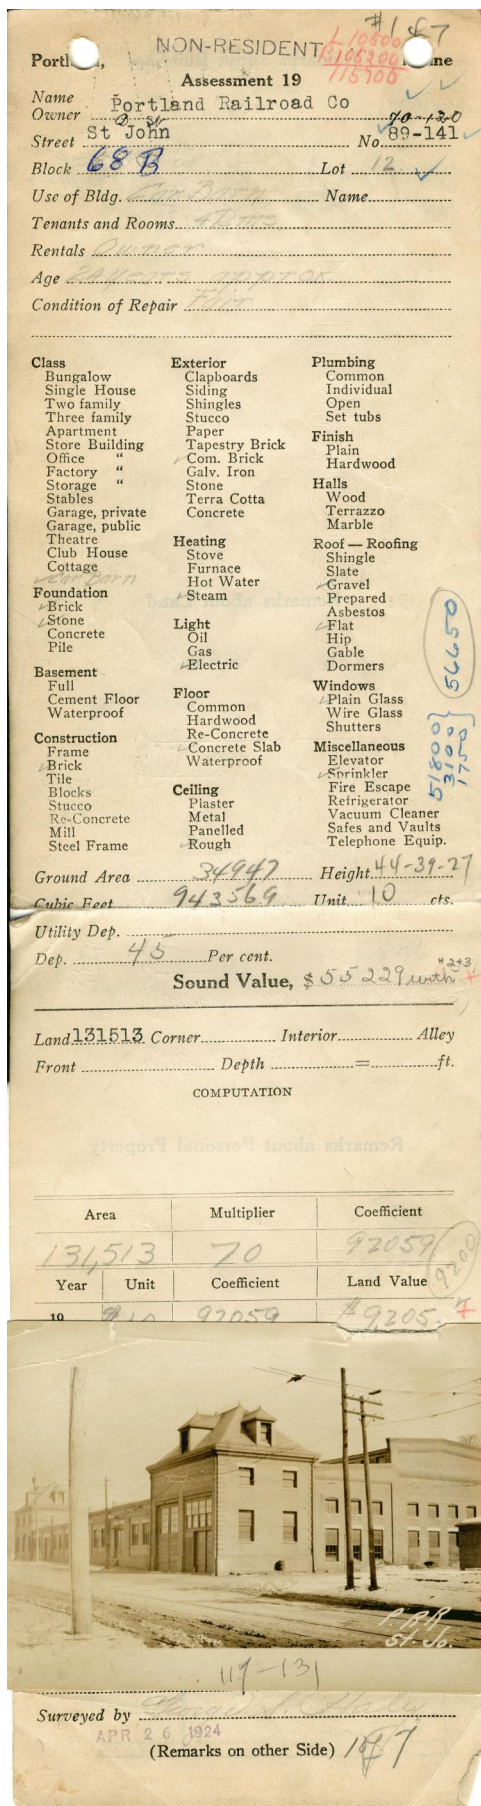 #1 of 7
NON-RESIDENT
L 10500
B 105200
115700
Portland, Maine
Assessment 19
Name
Owner Portland Railroad Co
D St
70-130
Street St John No. 89-141
Block 68 B Lot 12
Use of Bldg. Car Barn Name
Tenants and Rooms 4 Rms
Rentals Owner
Age 24 years approx
Condition of Repair Fair
Class
Bungalow
Single House
Two family
Three family
Apartment
Store Building
Office "
Factory "
Storage "
Stables
Garage, private
Garage, public
Theatre
Club House
Cottage
Car Barn
Foundation
Brick
Stone
Concrete
Pile
Basement
Full
Cement Floor
Waterproof
Construction
Frame
Brick
Tile
Blocks
Stucco
Re-Concrete
Mill
Steel Frame
Exterior
Clapboards
Siding
Shingles
Stucco
Paper
Tapestry Brick
Com. Brick
Galv. Iron
Stone
Terra Cotta
Concrete
Heating
Stove
Furnace
Hot Water
Steam
Light
Oil
Gas
Electric
Floor
Common
Hardwood
Re-Concrete
Concrete Slab
Waterproof
Ceiling
Plaster
Metal
Panelled
Rough
Plumbing
Common
Individual
Open
Set tubs
Finish
Plain
Hardwood
Halls
Wood
Terrazzo
Marble
Roof — Roofing
Shingle
Slate
Gravel
Prepared
Asbestos
Flat
Hip
Gable
Dormers
Windows
Plain Glass
Wire Glass
Shutters
Miscellaneous
Elevator
Sprinkler
Fire Escape
Refrigerator
Vacuum Cleaner
Safes and Vaults
Telephone Equip.
51800
3100
1750
56650
Ground Area 34947 Height 44-39-27
Cubic Feet 943569 Unit 10 cts.
Utility Dep.
Dep. 45 Per cent.
Sound Value, $55229 with #2+3
Land 131513 Corner Interior Alley
Front Depth = ft.
COMPUTATION
Remarks about Personal Property
Area Multiplier Coefficient
131,513 70 92059
9200
Year Unit Coefficient Land Value
19 .10 92059 $9,205.
P.R.R
St. Jo.
117-131
Surveyed by
APR 26 1924
(Remarks on other Side) 1 of 7